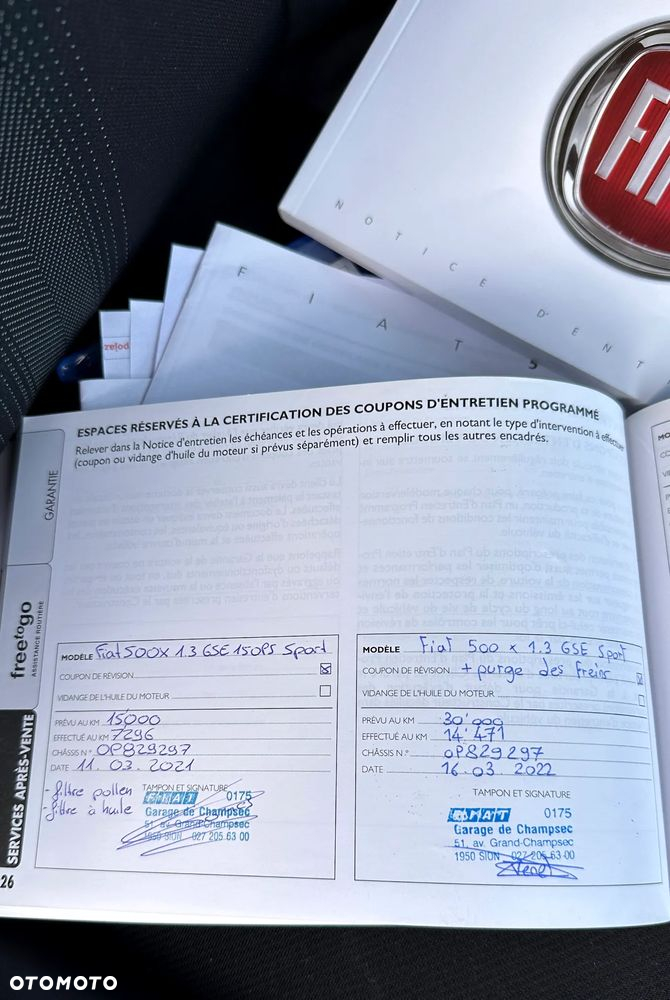 FIA
NOTICE D'ENT
FIAT 5
ESPACES RÉSERVÉS À LA CERTIFICATION DES COUPONS D'ENTRETIEN PROGRAMMÉ
Relever dans la Notice d'entretien les échéances et les opérations à effectuer, en notant le type d'intervention à effectuer
(coupon ou vidange d'huile du moteur si prévus séparément) et remplir tous les autres encadrés.
GARANTIE
freetogo
ASSISTANCE ROUTIÈRE
SERVICES APRÈS-VENTE
26
MODÈLE Fiat 500X 1.3 GSE 150PS Sport
COUPON DE RÉVISION
VIDANGE DE L'HUILE DU MOTEUR
PRÉVU AU KM 15'000
EFFECTUÉ AU KM 7296
CHÂSSIS N.° 0P829297
DATE 11.03.2021
- filtre pollen
- filtre à huile
TAMPON ET SIGNATURE
FIAT 0175
Garage de Champsec
51, av. Grand-Champsec
1950 SION 027 205 63 00
MODÈLE Fiat 500 x 1.3 GSE Sport
COUPON DE RÉVISION + purge des freins
VIDANGE DE L'HUILE DU MOTEUR
PRÉVU AU KM 30'000
EFFECTUÉ AU KM 14'471
CHÂSSIS N.° 0P829297
DATE 16.03.2022
TAMPON ET SIGNATURE
FIAT 0175
Garage de Champsec
51, av. Grand-Champsec
1950 SION 027 205 63 00
OTOMOTO